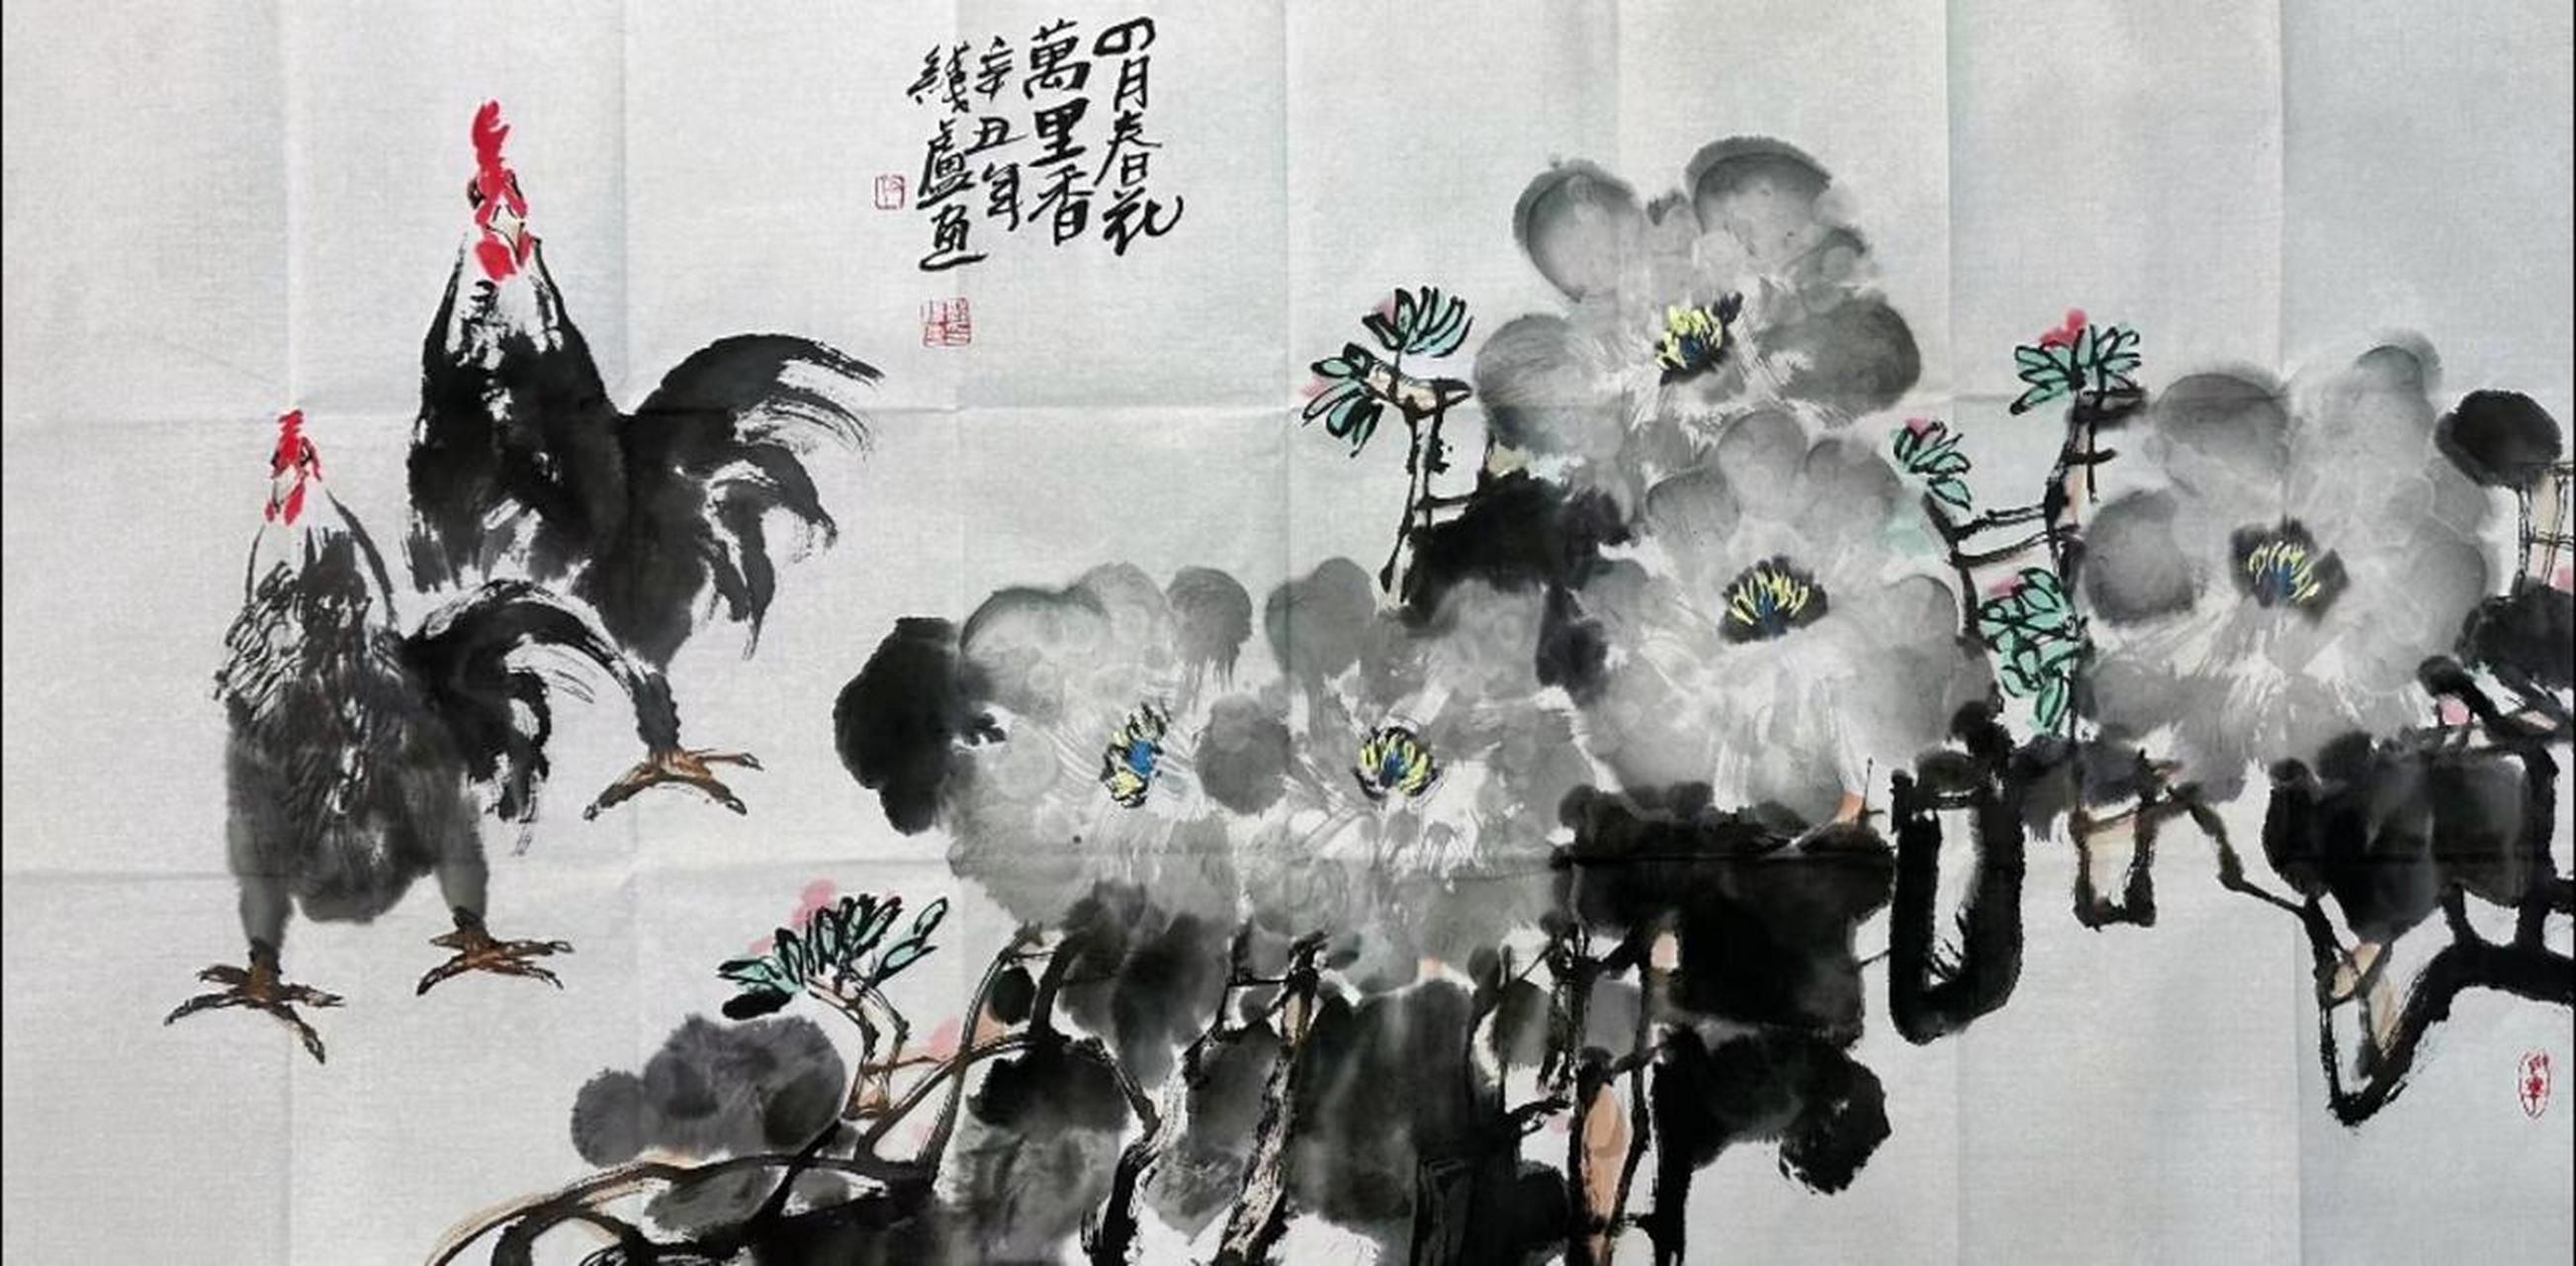 四月春花
萬里香
辛丑年
盧畫